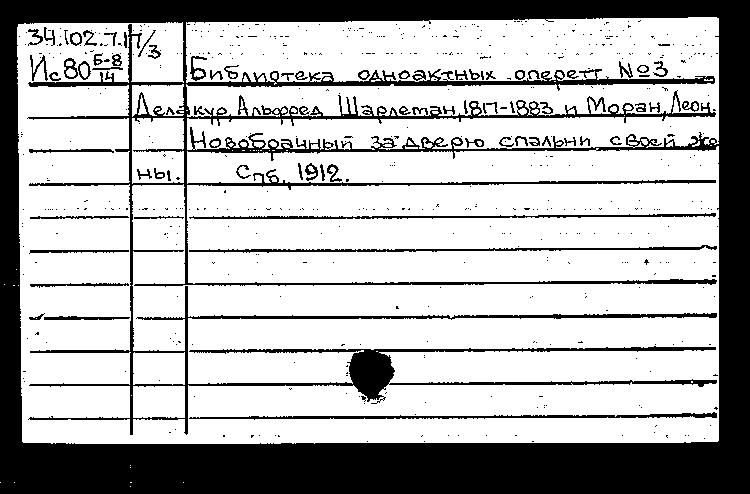 34.102.7.17/3
Ис80 Б-8/14 Библиотека одноактных оперетт №3
Делакур, Альфред Шарлеман, 1817-1883 и Моран, Леон.
Новобрачный за дверю спальни своей же
ны. Спб., 1912.